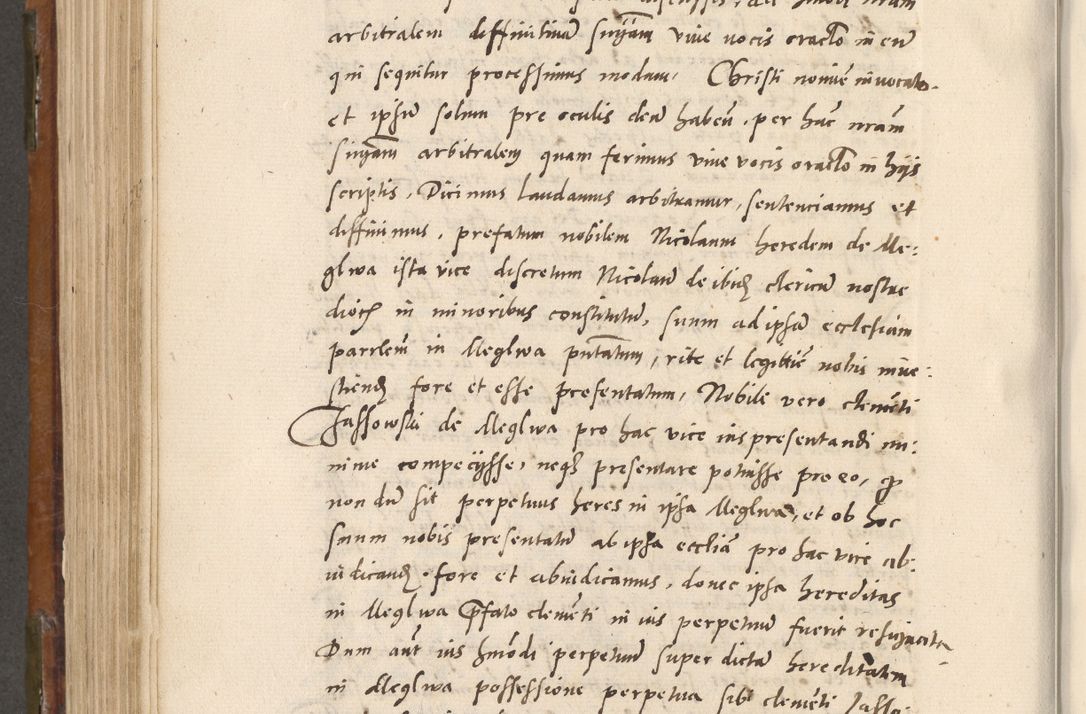 arbitralem diffinitivam sn̄iam vive vocis oraclo in eū
qui sequitur processimus modum. Christi nomine invocato
et ipsum solum pre oculis deum habeñ. per hāc nrām
sn̄iam arbitralem quam ferimus vive vocis oraclo in hijs
scriptis. Dicimus laudamus arbitramur, sentenciamus et
diffinimus, prefatum nobilem Nicolaum heredem de Me:
glwa ista vice discretum Nicolaū de ibidē clericū nostre
dioc̄ in minoribus constitutū, suum ad ipsā ecclesiam
parrlem̄ in Meglwa pn̄tatum, rite et legittie nobis inve:
stiend̄ fore et esse presentatum, Nobile vero clemēti
Jassowski de Meglwa pro hac vice ius presentandi mi:
nime compecijsse, neq3 presentare potuisse pro eo, qr
non dū sit perpetuus heres in ipsa Meglwa, et ob hoc
suum nobis presentatū ab ipsa eccliā pro hac vice ab:
iudicand̄ fore et abiudicamus, donec ipsa hereditas
in Meglwa p̄fato clemēti in ius perpetuū fuerit
Dum aūt ius hmōdi perpetuū super dictā hereditatem
in Meglwa possessione perpetua sibi clemēti Jasso: